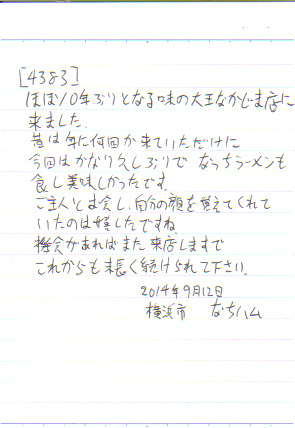 [4383]
ほぼ10年ぶりとなる味の大王なかじま店に
来ました.
昔は年に何回か来ていただけに
今回はかなり久しぶりで なっちラーメンも
食し美味しかったです.
ご主人とも会し、自分の顔を覚えてくれて
いたのは嬉したですね.
機会があればまた来店しますで
これからも末長く続けられて下さい.
2014年9月12日
横浜市 なちハム